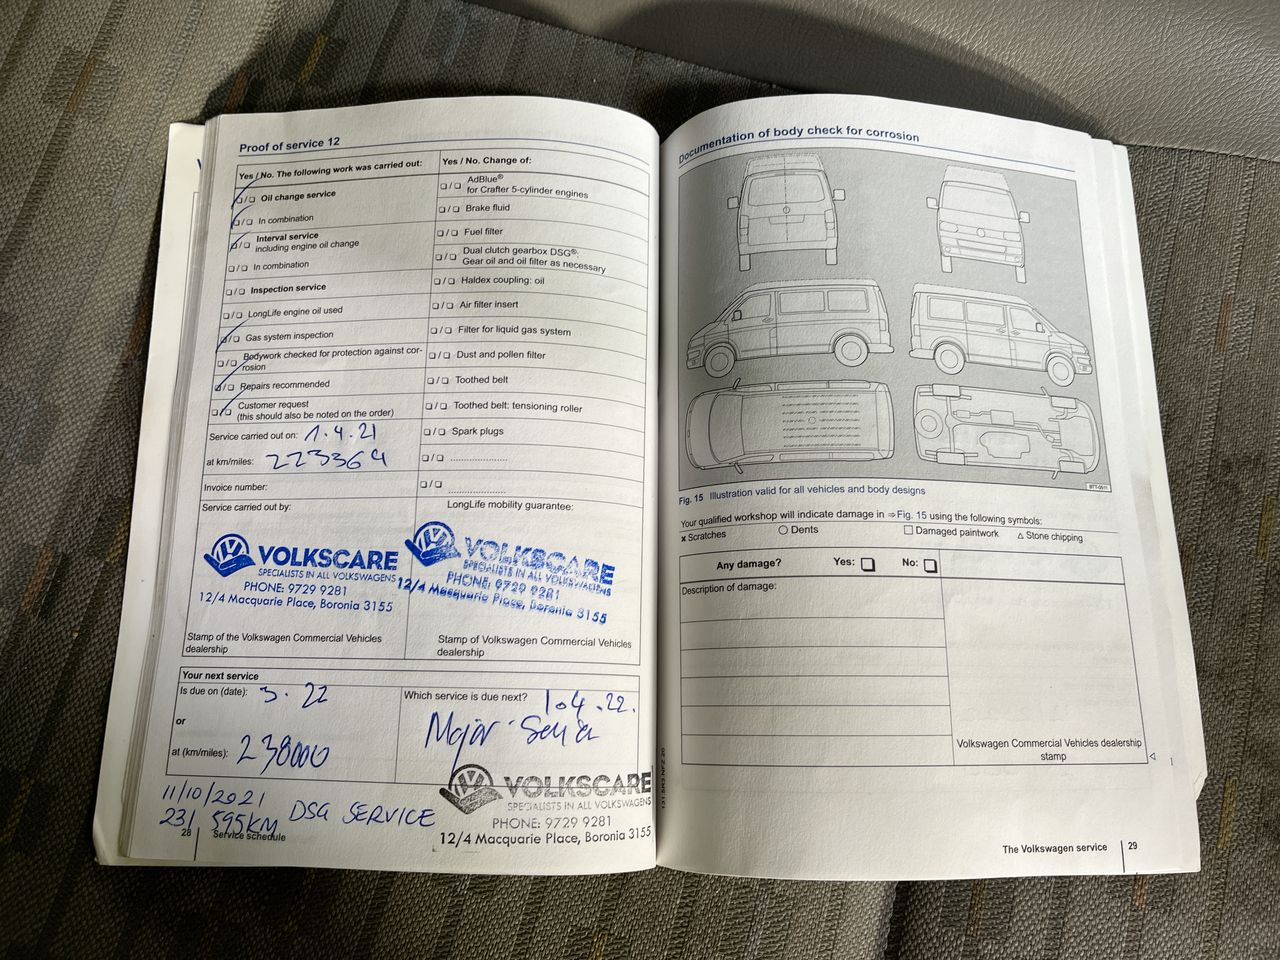 Proof of service 12
Yes / No. The following work was carried out:
Oil change service
In combination
Interval service
including engine oil change
In combination
Inspection service
LongLife engine oil used
Gas system inspection
Bodywork checked for protection against cor-
rosion
Repairs recommended
Customer request
(this should also be noted on the order)
Service carried out on: 1.4.21
at km/miles: 223364
Invoice number:
Service carried out by:
VOLKSCARE
SPECIALISTS IN ALL VOLKSWAGENS
PHONE: 9729 9281
12/4 Macquarie Place, Boronia 3155
Stamp of the Volkswagen Commercial Vehicles
dealership
Yes / No. Change of:
AdBlue®
for Crafter 5-cylinder engines
Brake fluid
Fuel filter
Dual clutch gearbox DSG®:
Gear oil and oil filter as necessary
Haldex coupling: oil
Air filter insert
Filter for liquid gas system
Dust and pollen filter
Toothed belt
Toothed belt: tensioning roller
Spark plugs
LongLife mobility guarantee:
VOLKSCARE
SPECIALISTS IN ALL VOLKSWAGENS
PHONE: 9729 9281
12/4 Macquarie Place, Boronia 3155
Stamp of Volkswagen Commercial Vehicles
dealership
Your next service
Is due on (date): 3.22
or
at (km/miles): 238000
Which service is due next? 1.4.22.
Major Service
VOLKSCARE
SPECIALISTS IN ALL VOLKSWAGENS
PHONE: 9729 9281
12/4 Macquarie Place, Boronia 3155
11/10/2021 DSG SERVICE
231 595KM
28 Service schedule
Documentation of body check for corrosion
Fig. 15 Illustration valid for all vehicles and body designs
Your qualified workshop will indicate damage in ⇒ Fig. 15 using the following symbols:
x Scratches ○ Dents □ Damaged paintwork △ Stone chipping
Any damage? Yes: No:
Description of damage:
Volkswagen Commercial Vehicles dealership
stamp
The Volkswagen service 29